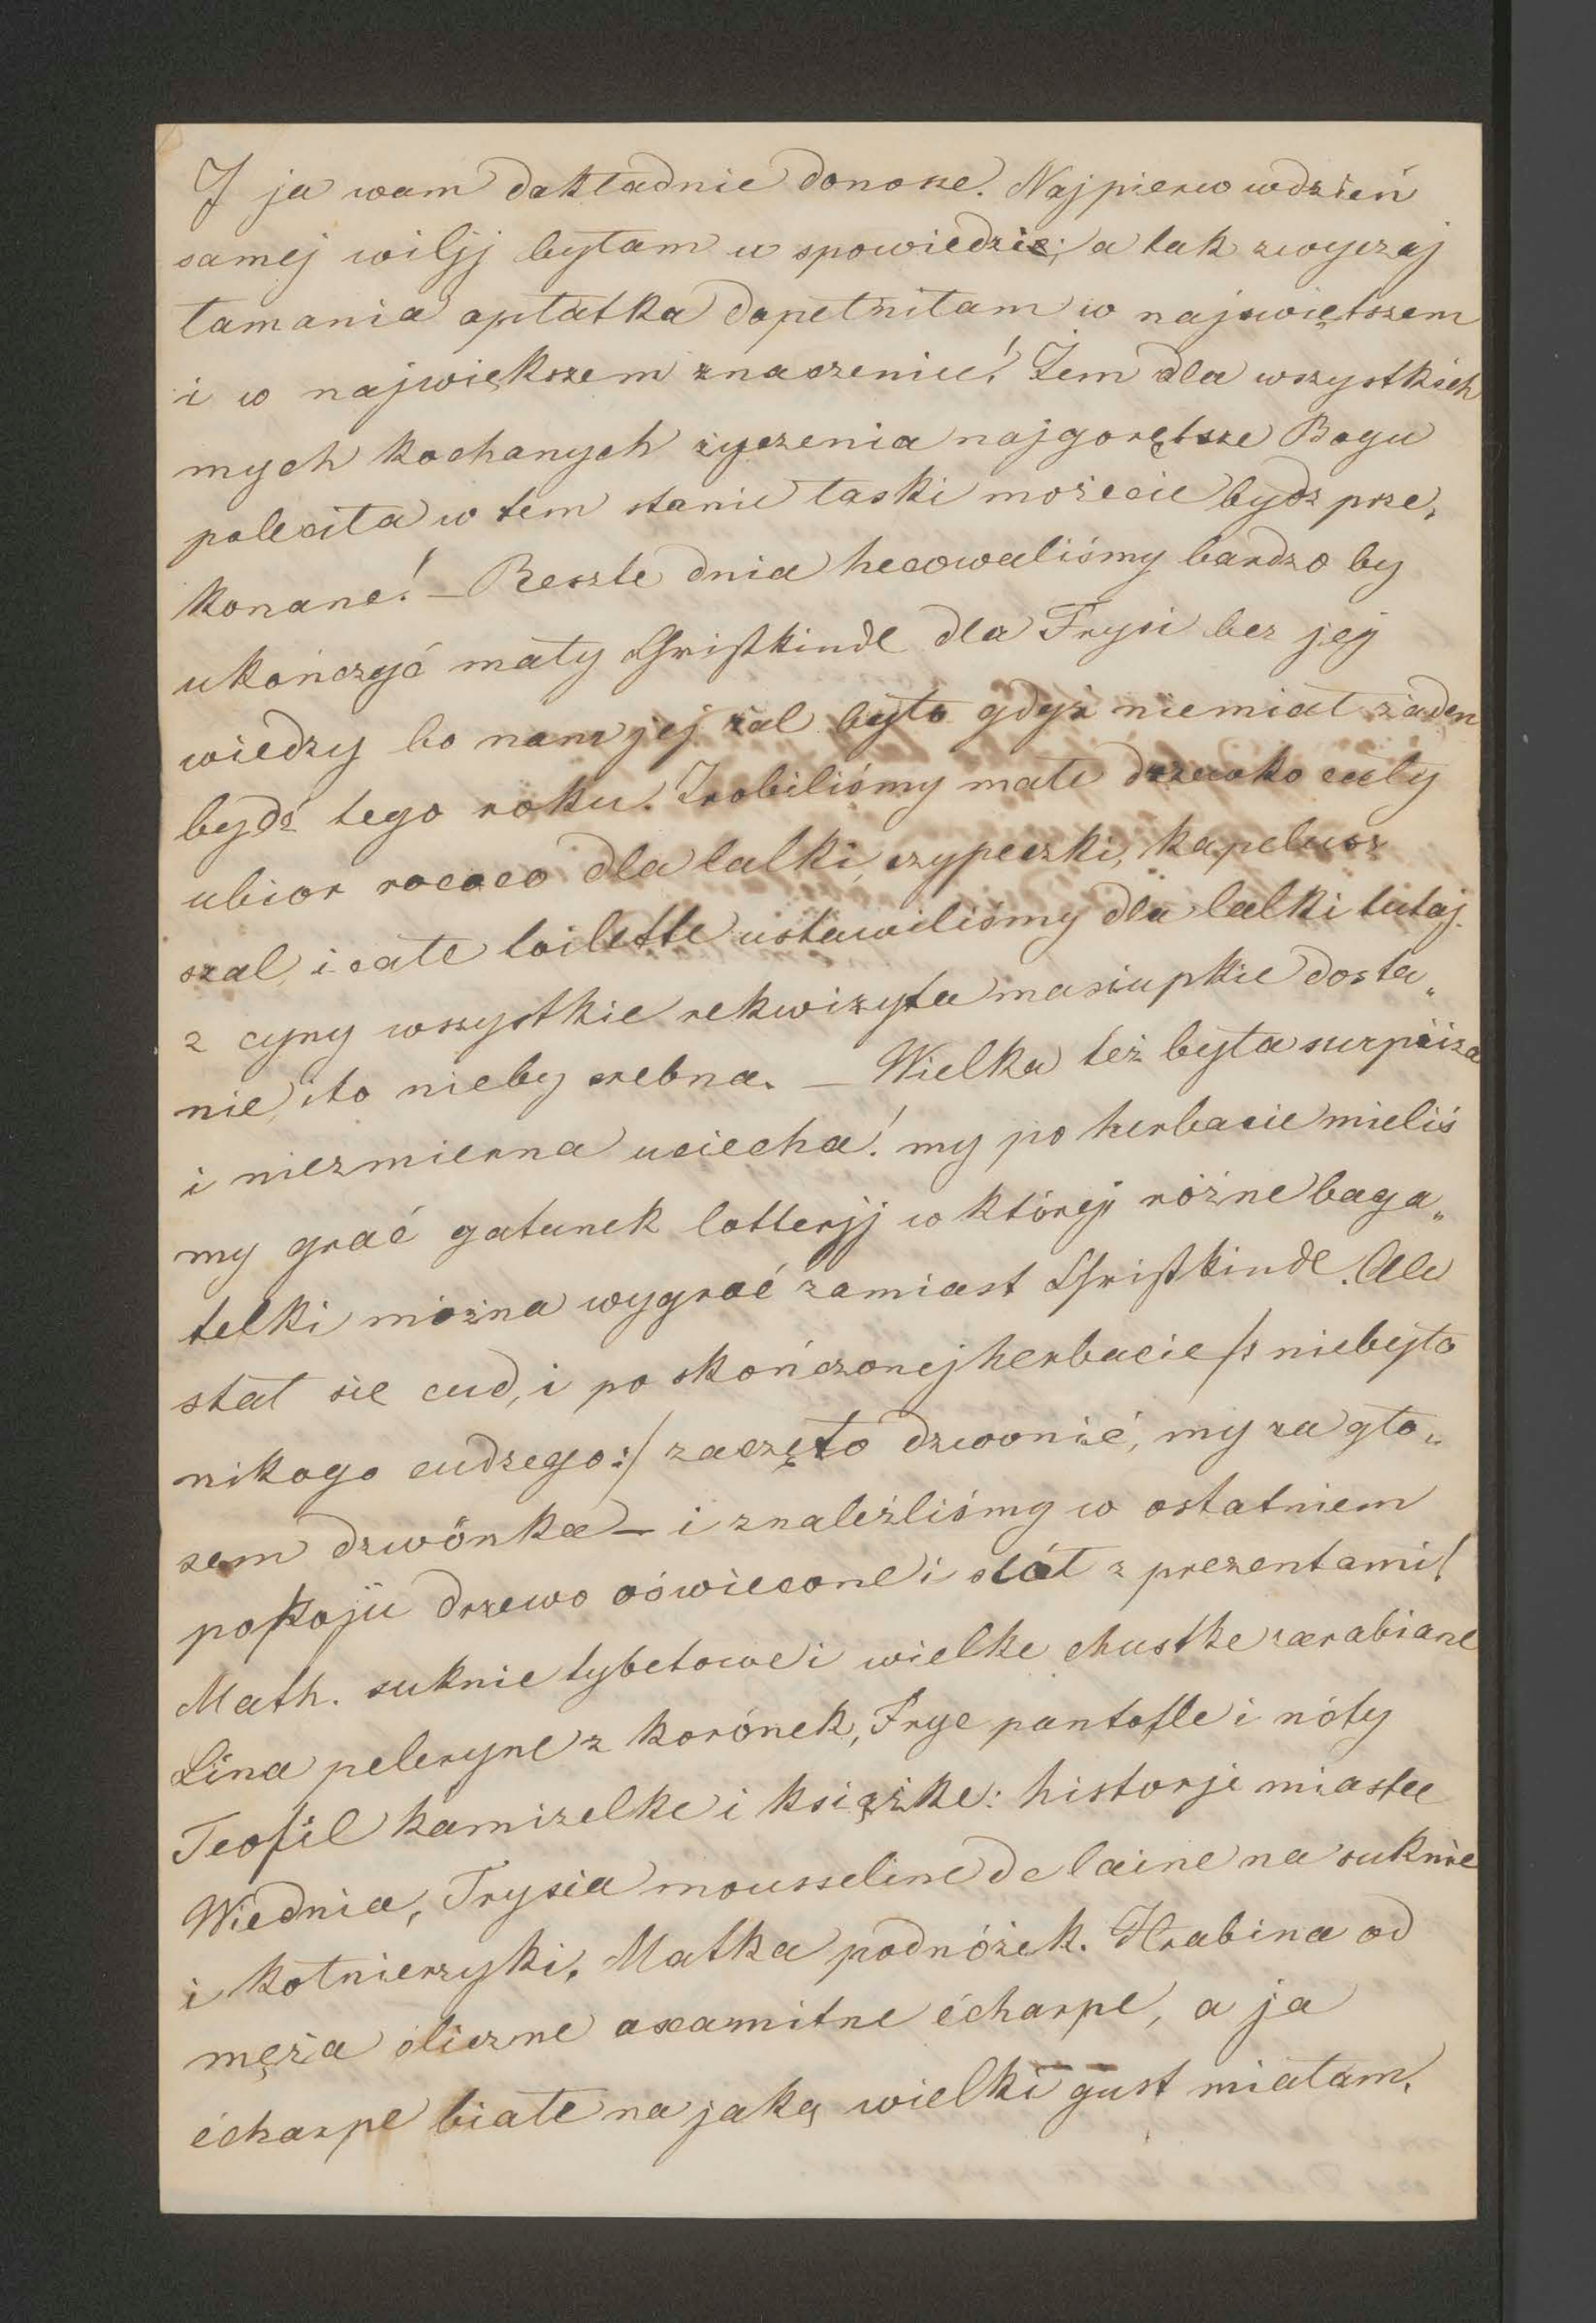 I ja wam dokładnie donosze. Najpierw wdzień
samej wilij byłam u spowiedzie; a tak zwyczaj
łamania opłatka dopełniłam w najswiętszem
i w największem znaczeniu! Żem dla wszystkich
mych kochanych życzenia najgorętsze Bogu
poleciła w tem stanie łaski możecie bydz prze„
konane! – Reszte dnia hecowaliśmy bardzo by
ukończyć mały Christkindl dla Frysi bez jej
wiedzy bo nam jej żal było gdyż niemiał żaden
bydź tego roku. Zrobiliśmy małe drzewko cały
ubior rococo dla lalki, czypeczki, kapelusz
szal, i całe toilette ustawiliśmy dla lalki tutaj
z cyny wszystkie rekwizyta masiupkie dosta„
nie, ito nieby srebna. – Wielka też była surpriza
i niezmierna uciecha! my po herbacie mieliś
my grać gatunek lotterjj w którejj różne baga„
telki można wygrać zamiast Christkindl. Ale
stał sie cud, i po skończonej herbacie /: niebyło
nikogo cudzego :/ zaczęto dzwonić, my za gło„
sem dzwönka – i znaleźliśmy w ostatniem
pokoju drzewo oświecone i stół z prezentami!
Math. suknie tybetowe i wielke chustke zarabiane
Lina peleryne z korónek, Frye pantofle i nóty
Teofil kamizelke i książke: historje miasta
Wiednia, Frysia mousseline de laine na suknie
i kołnierzyki, Matka podnóżek. Hrabina od
męża śliczne axamitne écharpe, a ja
écharpe białe na jaką wielki gust miałam.